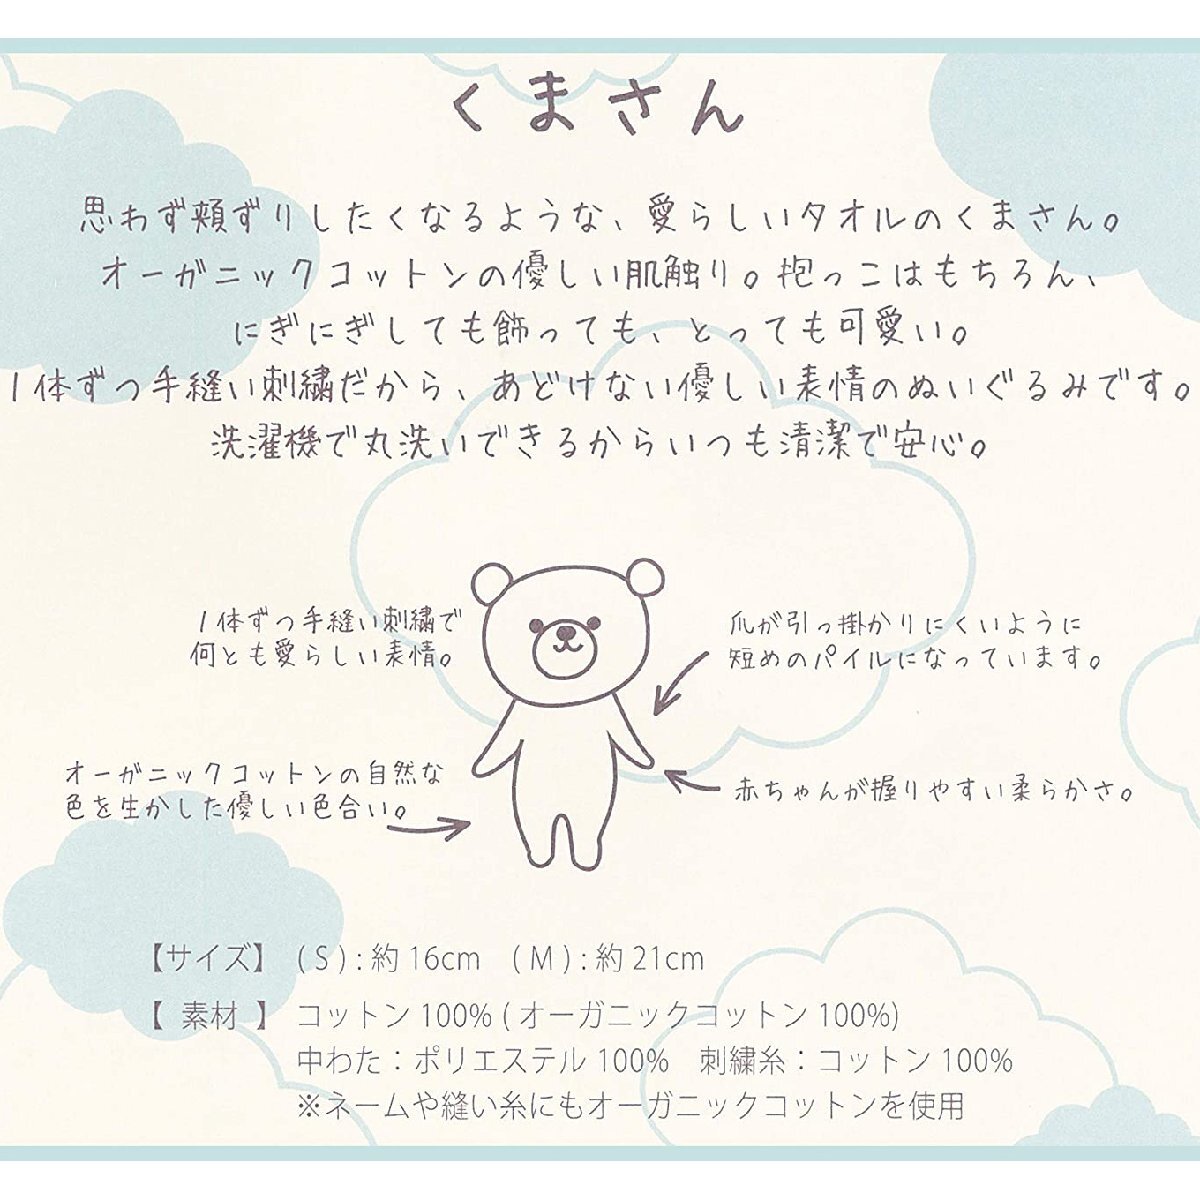 くまさん
思わず頬ずりしたくなるような、愛らしいタオルのくまさん。
オーガニックコットンの優しい肌触り。抱っこはもちろん、
にぎにぎしても飾っても、とっても可愛い。
1体ずつ手縫い刺繍だから、あどけない優しい表情のぬいぐるみです。
洗濯機で丸洗いできるからいつも清潔で安心。
1体ずつ手縫い刺繍で
何とも愛らしい表情。
爪が引っ掛かりにくいように
短めのパイルになっています。
オーガニックコットンの自然な
色を生かした優しい色合い。
赤ちゃんが握りやすい柔らかさ。
【サイズ】 (S):約16cm (M):約21cm
【 素材 】 コットン100%(オーガニックコットン100%)
中わた：ポリエステル100% 刺繍糸：コットン100%
※ネームや縫い糸にもオーガニックコットンを使用